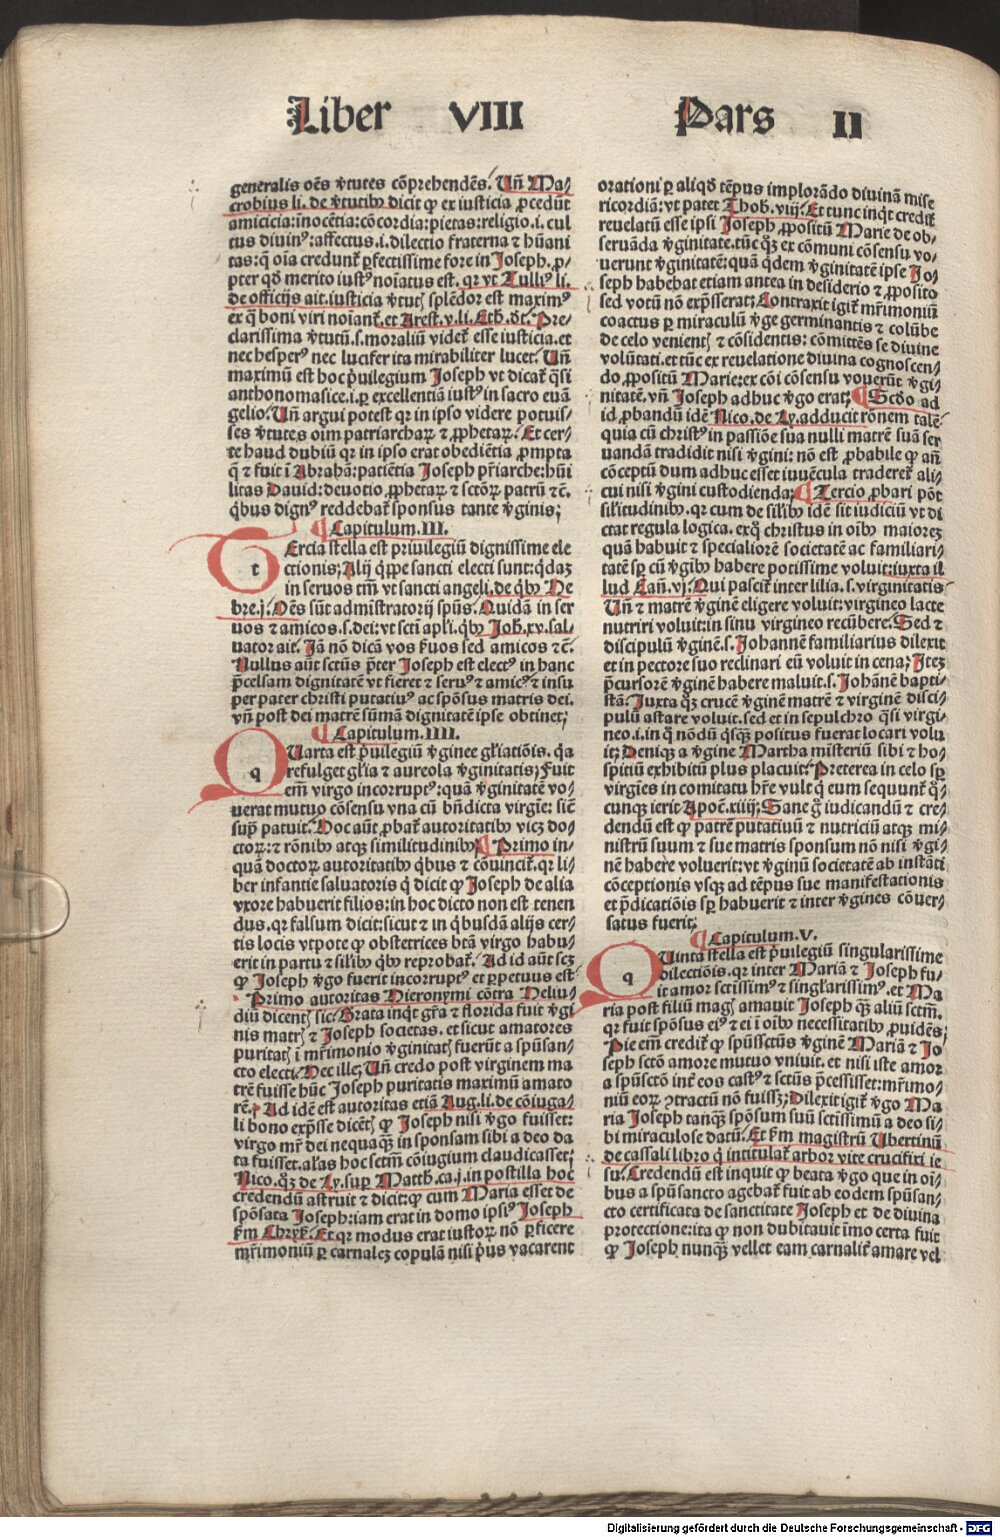 Liber VIII Pars II
generalis oēs v̓tutes cōprehendēs. Un̄ Ma/
crobius li. de v̓tutibꝰ dicit ꝙ ex iusticia ꝓcedūt
amicicia: īnocētia: cōcordia: pietas: religio .i. cul
tus diuinꝰ: affectus .i. dilectio fraterna ⁊ hūani
tas: q̄ oīa credunt̄ ꝑfectissime fore in Joseph. ꝓ/
pter qd̓ merito iustꝰ noīatus est. qꝛ vt Tulliꝰ li.
de officijs ait. iusticia v̓tutꝭ splēdor est maximꝰ
ex q̄ boni viri noīant̄. et Arest. v. li. Eth̓. dt̓. Pre/
clarissima v̓tutū .s. moraliū videt̄ esse iusticia. et
nec hesperꝰ nec lucifer ita mirabiliter lucet. Un̄
maximū est hoc p̓uilegium Joseph vt dicat̄ q̄si
anthonomasice .i. ꝑ excellentiā iustꝰ in sacro euā
gelio. Un̄ argui potest qꝛ in ipso videre potuis/
ses v̓tutes oīm patriarchaꝝ ⁊ ꝓphetaꝝ. Et cer/
te haud dubiū qꝛ in ipso erat obediētia ꝓmpta
q̄ ⁊ fuit ī Abrahā: patiētia Joseph pr̄iarche: hūi
litas Dauid: deuotio ꝓphetaꝝ ⁊ sctōꝝ patrū ⁊c̄.
q̓bus dignꝰ reddebat̄ sponsus tante v̓ginis;
¶ Capitulum .III.
t Ercia stella est priuilegiū dignissime ele
ctionis; Alij q̄ppe sancti electi sunt: q̓daꝫ
in seruos tm̄ vt sancti angeli. de q̓bꝰ He
bre. j. Oēs sūt admīstratorij spūs. Quidā in ser
uos ⁊ amicos .s. dei: vt scti apl̓i. q̓bꝰ Joh̓. xv. sal/
uator ait. Jā nō dicā vos s̓uos sed amicos ⁊c̄.
Nullus aūt sctūs p̄ter Joseph est electꝰ in hanc
p̄celsam dignitatē vt fieret ⁊ seruꝰ ⁊ amicꝰ ⁊ insu
per pater christi putatiuꝰ ac spōsus matris dei.
vn̄ post dei matrē sūmā dignitatē ipse obtinet;
¶ Capitulum .IIII.
q Uarta est p̓uilegiū v̓ginee gl̓iatiōis. qa
refulget gl̓ia ⁊ aureola v̓ginitatis; Fuit
em̄ virgo incorruptꝰ: quā v̓ginitatē vo/
uerat mutuo cōsensu vna cū bn̄dicta virgīe: sic̄
sup̄ patuit. Hoc aūt ꝓbat̄ autoritatibꝰ vicꝫ do/
ctoꝝ: ⁊ rōnibꝰ atqꝫ similitudinibꝰ; ¶ Primo in/
quā doctoꝝ autoritatibꝰ q̓bus ⁊ cōuincit̄. qꝛ li/
ber infantie saluatoris q̓ dicit ꝙ Joseph de alia
vxore habuerit filios: in hoc dicto non est tenen
dus. qꝛ falsum dicit: sicut ⁊ in q̓busdā alijs cer/
tis locis vtpote ꝙ obstetrices btā virgo habu/
erit in partu ⁊ silibꝰ q̓bꝰ reprobat̄. Ad id aūt scꝫ
ꝙ Joseph v̓go fuerit incorruptꝰ et ꝑpetuus est
Primo autoritas Hieronymi cōtra Heluiu/
diū dicentꝭ sic. Grata inq̓t gr̄a ⁊ florida fuit v̓gi
nis matrꝭ ⁊ Joseph societas. et sicut amatores
puritatꝭ ī mr̄imonio v̓ginitatꝭ fuerūt a spūsan/
cto electi. Hec ille; Un̄ credo post virginem ma
trē fuisse hūc Joseph puritatis maximū amato
rē. Ad idē est autoritas etiā Aug. li. de cōiuga/
li bono exp̄sse dicētꝭ ꝙ Joseph nisi v̓go fuisset:
virgo mr̄ dei nequaqꝫ in sponsam sibi a deo da
ta fuisset. al̓as hoc sctm̄ cōiugium claudicasset;
Nico. qꝫ de Ly. suꝑ Matth̓. ca. j. in postilla hoc
credendū astruit ⁊ dicit: ꝙ cum Maria esset de
spōsata Joseph: iam erat in domo ipsiꝰ Joseph
s̓m Chrys̓. Et qꝛ modus erat iustoꝝ nō ꝑficere
mr̄imoniū ꝑ carnaleꝫ copulā nisi p̓us vacarent
orationi ꝑ aliqd̓ tēpus implorādo diuinā mise
ricordiā: vt patet Thob. viij. Et tunc inq̓t credit̄
reuelatū esse ipsi Joseph ꝓpositū Marie de ob/
seruāda v̓ginitate. tūc qꝫ ex cōmuni cōsensu vo/
uerunt v̓ginitatē: quā q̓dem v̓ginitatē ipse Jo/
seph habebat etiam antea in desiderio ⁊ ꝓposito
sed votū nō exp̄sserat; Contraxit igit̄ mr̄imoniū
coactus ꝑ miraculū v̓ge germinantis ⁊ colūbe
de celo venientꝭ ⁊ cōsidentis: cōmittēs se diuine
volūtati. et tūc ex reuelatione diuina cognoscen/
do ꝓpositū Marie: ex cōi cōsensu vouerūt v̓gi/
nitatē. vn̄ Joseph adhuc v̓go erat; ¶ Scd̓o ad
id ꝓbandū idē Nico. de Ly. adducit rōnem talē
quia cū christꝰ in passiōe sua nulli matrē suā ser
uandā tradidit nisi v̓gini: nō est ꝓbabile ꝙ an̄
cōceptū dum adhuc esset iuuēcula traderet̄ ali/
cui nisi v̓gini custodienda; ¶ Tercio ꝓbari pōt
silitudinibꝰ. qꝛ cum de silibꝰ idē sit iudiciū vt di
ctat regula logica. exq̓ christus in oībꝰ maioreꝫ
quā habuit ⁊ specialiorē societatē ac familiari/
tatē sꝑ cū v̓gībꝰ habere potissime voluit: iuxta il
lud Cañ. vj. Qui pascit̄ inter lilia .s. virginitatis
Un̄ ⁊ matrē v̓ginē eligere voluit: virgineo lacte
nutriri voluit: in sinu virgineo recūbere. Sed ⁊
discipulū v̓ginē .s. Johannē familiarius dilexit
et in pectore suo reclinari eū voluit in cena; Iteꝫ
p̄cursorē v̓ginē habere maluit .s. Johānē bapti/
stā. Juxta qꝫ crucē v̓ginē matrē ⁊ virginē disci/
pulū astare voluit. sed et in sepulchro q̄si virgi/
neo .i. in q̓ nōdū q̄sqꝫ positus fuerat locari volu
it; Denique a v̓gine Martha misteriū sibi ⁊ ho/
spitiū exhibitū plus placuit. Preterea in celo sꝑ
virgies in comitatu hr̄e vult q̓ eum sequunt̄ q̓/
cunqꝫ ierit Apoc̄. xiiij; Sane g̓ iudicandū ⁊ cre/
dendū est ꝙ patrē putatiuū ⁊ nutriciū atqꝫ mi/
nistrū suum ⁊ sue matris sponsum nō nisi v̓gi/
nē habere voluerit: vt v̓giniū societatē ab instāti
cōceptionis vsqꝫ ad tēpus sue manifestationis
et p̄dicatiōis sꝑ habuerit ⁊ inter v̓gines cōuer/
satus fuerit;
¶ Capitulum .V.
q Uinta stella est p̓uilegiū singularissime
dilectiōis. qꝛ inter Mariā ⁊ Joseph fu/
it amor sctissimꝰ ⁊ singl̓arissimꝰ. et Ma
ria post filiū magꝭ amauit Joseph qꝫ aliū sctm̄.
qꝛ fuit spōsus eiꝰ ⁊ ei ī oībꝰ necessitatibꝰ ꝓuidēs;
Pie em̄ credit̄ ꝙ spūssctūs v̓ginē Mariā ⁊ Jo
seph sctō amore mutuo vniuit. et nisi iste amor
a spūsctō int̄ eos castꝰ ⁊ sctūs p̄cessisset: mr̄imo/
niū eoꝝ ꝯtractū nō fuissꝫ; Dilexit igit̄ v̓go Ma
ria Joseph tanqꝫ spōsum suū sctissimū a deo si/
bi miraculose datū. Et s̓m magistrū Ubertinū
de cassali libro q̓ intitulat̄ arbor vite crucifixi ie
su. Credendū est inquit ꝙ beata v̓go que in oi/
bus a spūsancto agebat̄ fuit ab eodem spūsan/
cto certificata de sanctitate Joseph et de diuina
protectione: ita ꝙ non dubitauit īmo certa fuit
ꝙ Joseph nunqꝫ vellet eam carnalit̄ amare vel
Digitalisierung gefördert durch die Deutsche Forschungsgemeinschaft - DFG